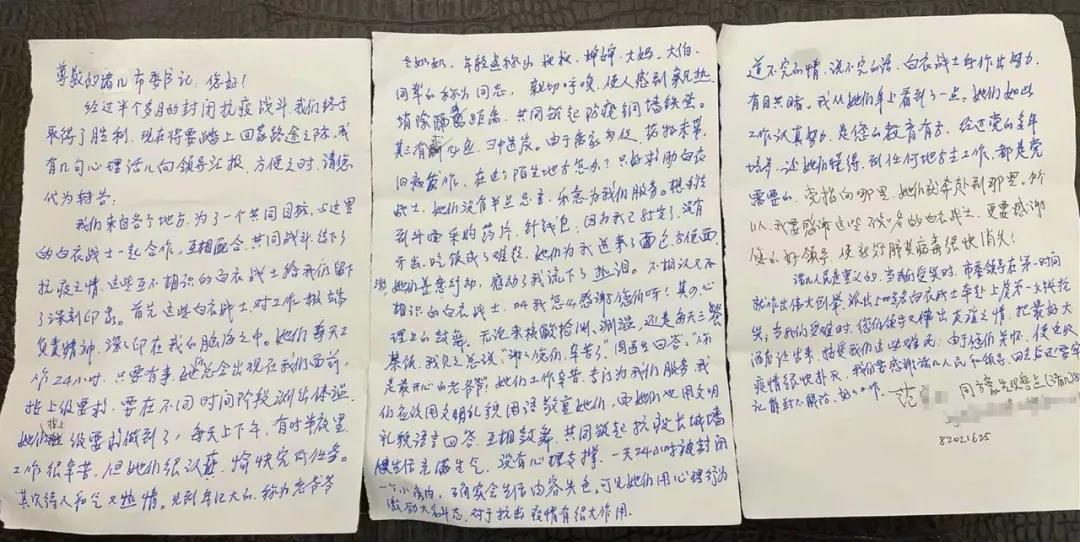 尊敬的诸几市委书记，您好！
经过半个多月的封闭抗疫战斗，我们终于
取得了胜利，现在将要踏上回家路途之际，我
有几句心理话儿向领导汇报，方便之时，请您
代为转告：
我们来自各个地方，为了一个共同目标，与这里
的白衣战士一起合作，互相配合，共同战斗，结下了
抗疫之情，这些互不相识的白衣战士给我们留下
了深刻印象。首先这些白衣战士，对工作极端
负责精神，深深印在我的脑海之中。她们每天工
作24小时，只要有事，她总会出现在我们面前，
按上级要求，要在不同时间阶段测出体温，
她们按上级要求做到了，每天上下午，有时半夜里
工作很辛苦，但她们很认真，愉快完成任务。
其次待人和气又热情。见到年纪大的，称为老爷爷
老奶奶，年轻点称为叔叔，婶婶，大妈，大伯，
同辈的称为同志，亲切呼唤，使人感到亲热
消除隔离距离，共同筑起防疫铜墙铁壁。
其三有求必应，由于离家多日，
旧病复作，在这个陌生地方怎办？只好求助白衣
战士，她们没有半点怨言，乐意为我们服务。想方设法
到外面采购药片，针线包，因为我已封控了，没有
外出，吃饭成了难径，她们为我送来了面包方便面
她们善意行动，感动了我流下了热泪。不相认又不
相识的白衣战士，叫我怎么感谢您们呀！其四心
理上的鼓舞。无论来核酸检测，测温，还是每天三餐
菜饭，我见之总说“你们辛苦了”，周医生回答，“你
是最开心的老爷爷”，她们工作辛苦，专门为我们服务，我
们应该用文明礼貌用语教育她们，而她们也用文明
礼貌语言回答，互相鼓舞，共同筑起抗疫长城墙
使生活充满生气，没有心理支撑，一天24小时被封闭
一个小房内，确实会生活内容失色，可见她们用心理行为
激励大家斗志，对于抗击疫情有很大作用。
道不完的情，说不完的话，白衣战士的工作与努力，
有目共睹。我从她们身上看到了一点，她们如此
工作认真努力，是您们教育有方，经过党的多年
培养，让她们懂得，到任何地方去工作，都是党
需要的，党指向哪里，她们就奔赴到哪里。所
以，我要感谢这些不熟名的白衣战士，更要感谢
您们好领导，使新冠肺炎病毒很快消失！
诸几人民是重义的，当我们受灾时，市委领导在第一时间
就作出伟大创举，派出上的白衣战士奔赴上虞第一线抗
炎，当我们受难时，您们领导又伸出友谊之情，把最好大
酒店让出来，招接我们这些难民，由于您们关怀，使这次
疫情很快扑灭，我们要感谢诸几人民和领导，回去后还要牢
记 解封不解防，做好工作。 范
82021625